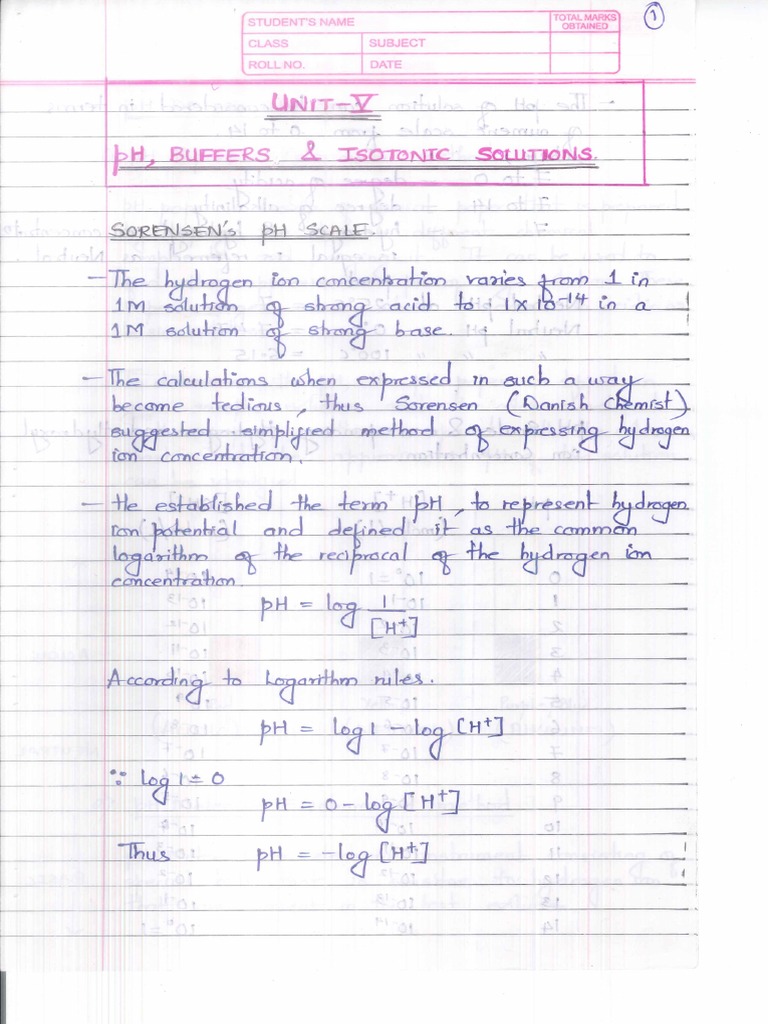 STUDENT'S NAME
TOTAL MARKS OBTAINED
1
CLASS
SUBJECT
ROLL NO.
DATE
UNIT-V
pH, BUFFERS & ISOTONIC SOLUTIONS.
SORENSEN'S pH SCALE.
- The hydrogen ion concentration varies from 1 in
1M solution of strong acid to 1×10⁻¹⁴ in a
1M solution of strong base.
- The calculations when expressed in such a way
become tedious, thus Sorensen (Danish Chemist)
suggested simplified method of expressing hydrogen
ion concentration.
- He established the term pH, to represent hydrogen
ion potential and defined it as the common
logarithm of the reciprocal of the hydrogen ion
concentration.
pH = log 1/[H⁺]
According to Logarithm rules.
pH = log 1 - log [H⁺]
∵ log 1 = 0
pH = 0 - log [H⁺]
Thus pH = -log [H⁺]